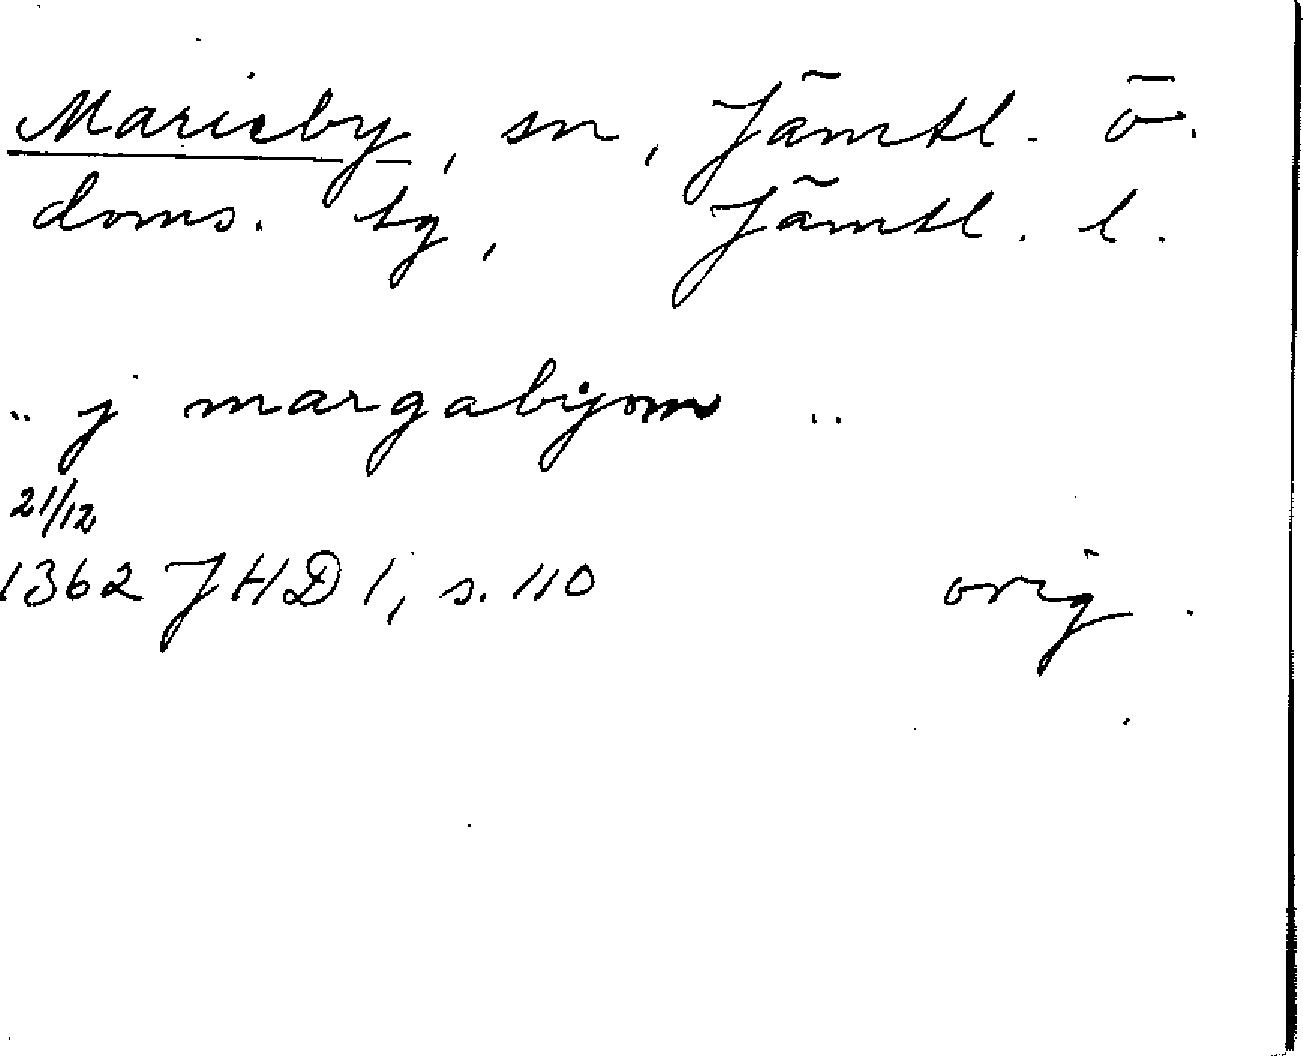 Marieby, sn, Jämtl. ö.
doms. tg, Jämtl. l.
.. j margabyom ..
21/12
1362 JHD 1, s. 110 orig.